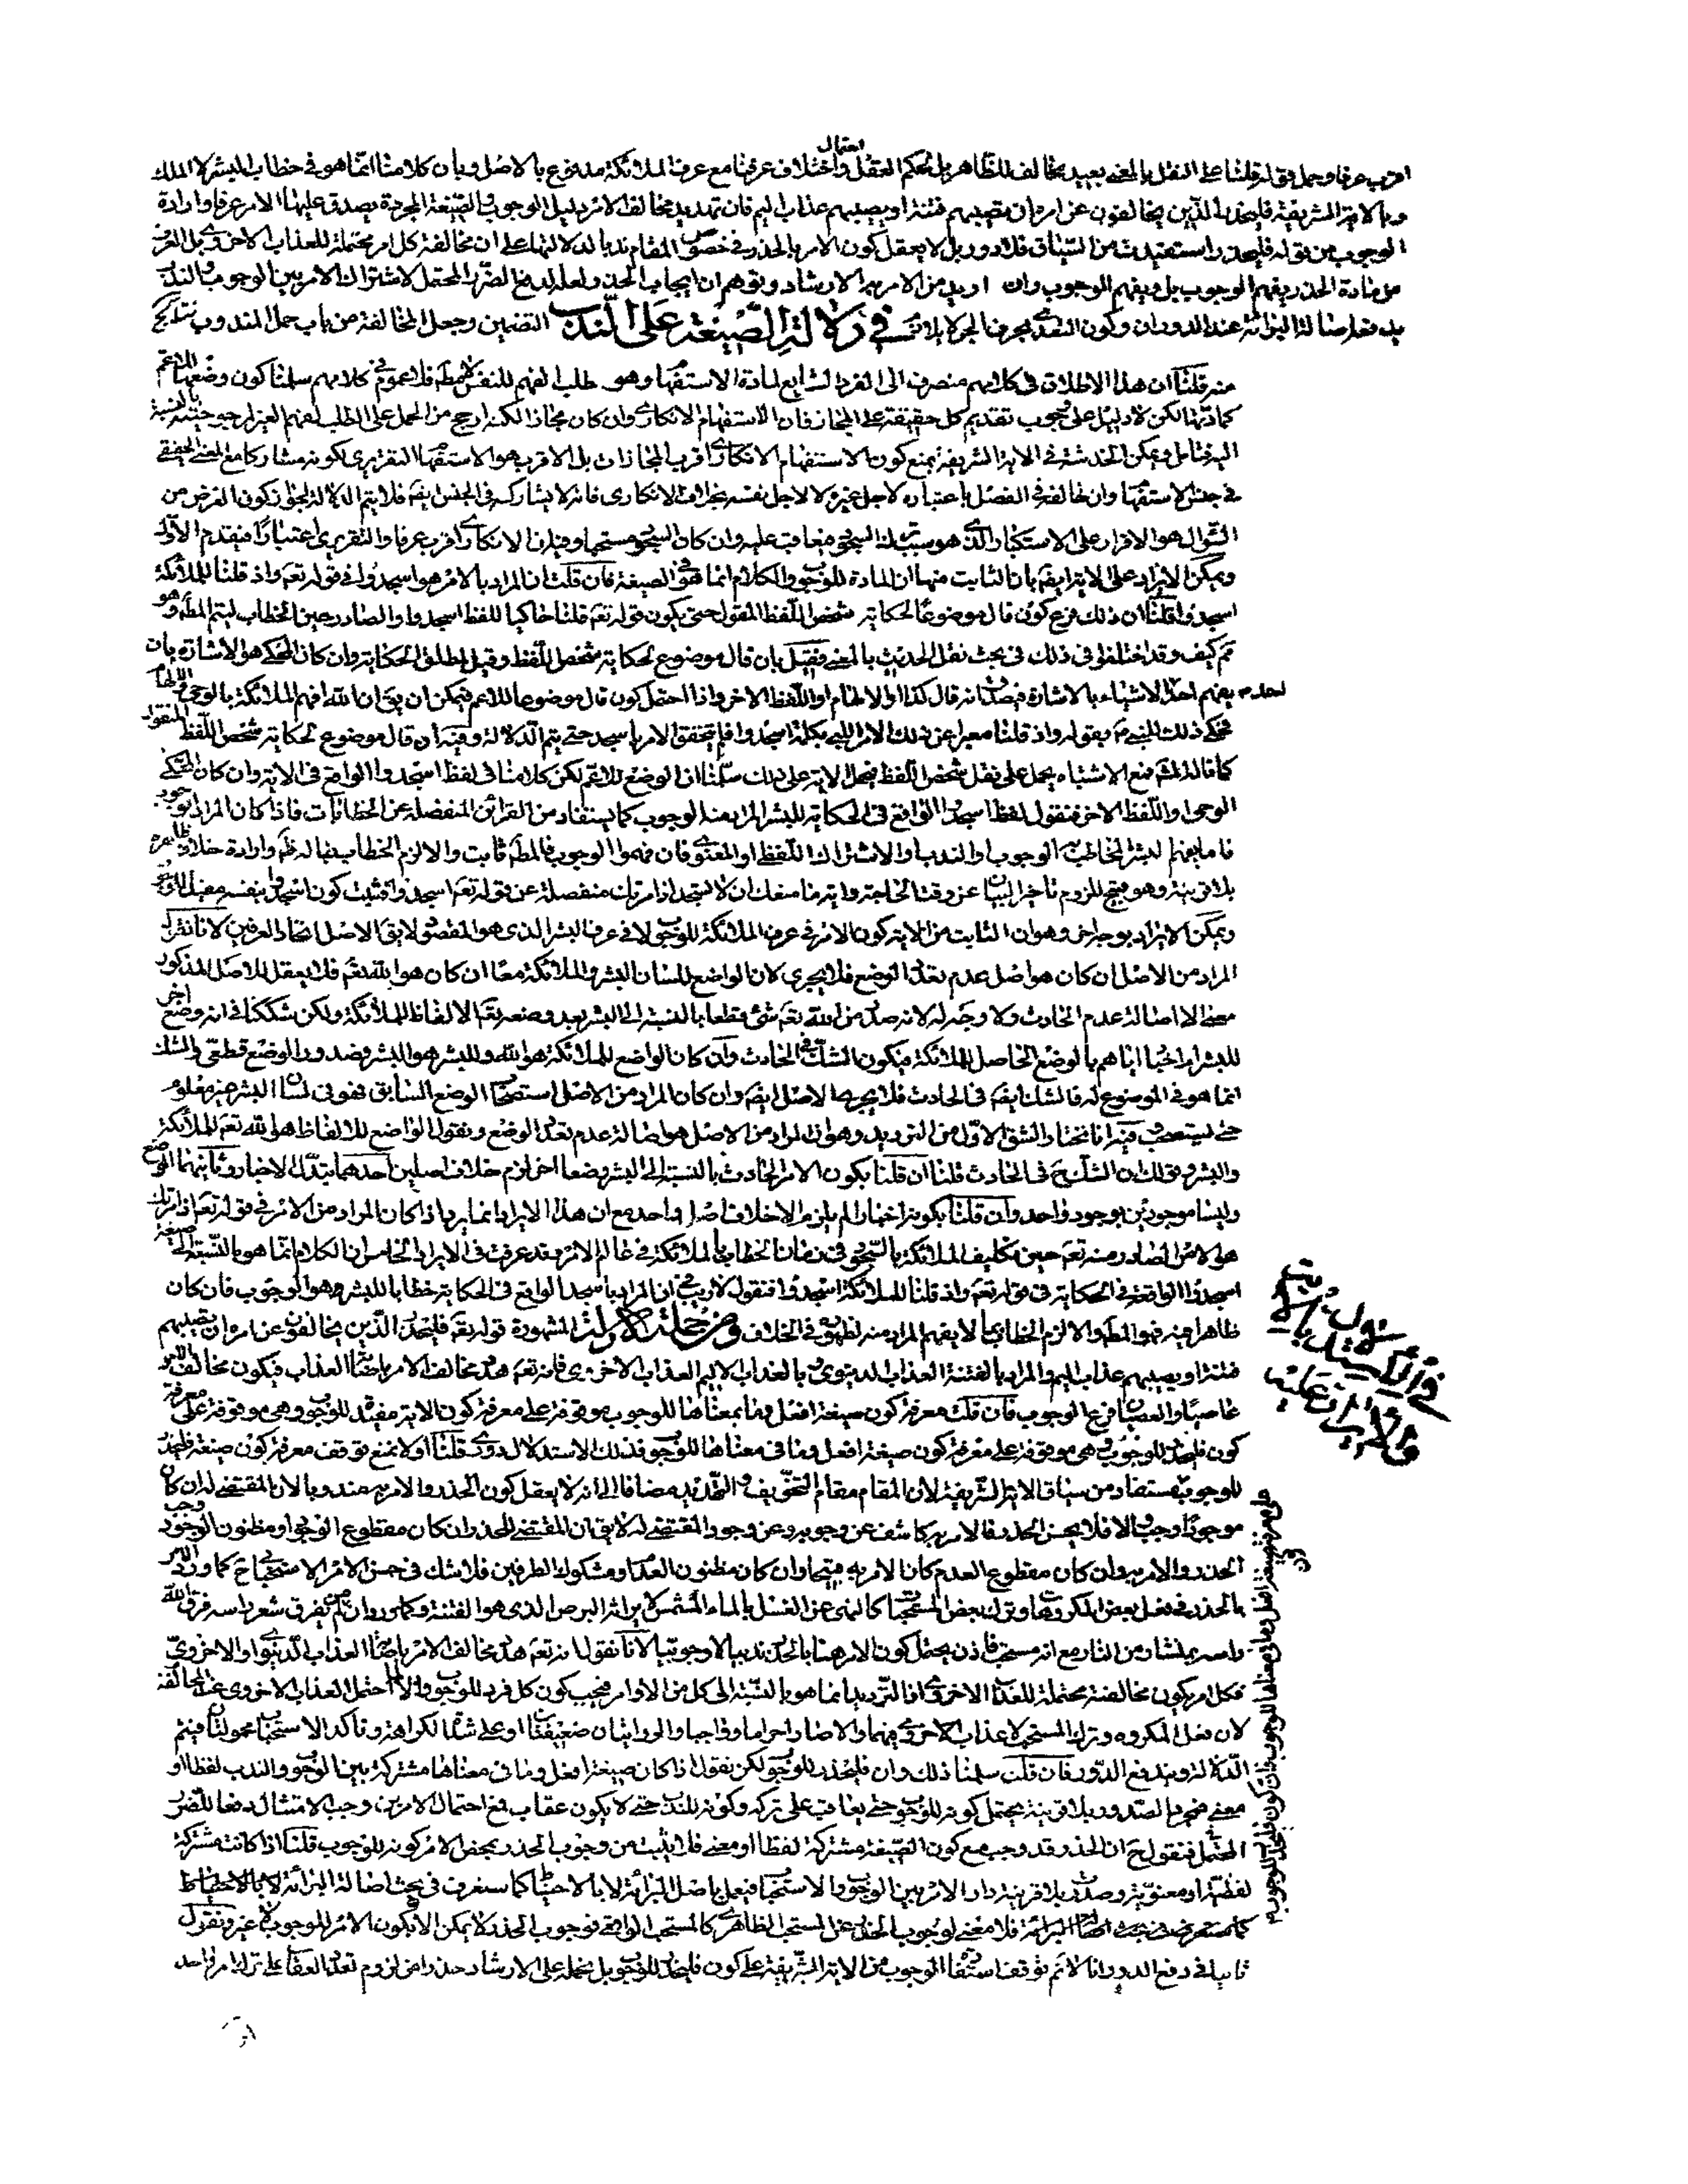 اقرب عرفا وحمل قوله قلنا على النقل بالمعنى بعيد مخالف للظاهر بل بحكم العقل واحتمال اختلاف عرفنا مع عرف الملائكة مدفوع بالاصل وبان كلامنا انما هو في خطاب البشر لا الملك
وبالاية الشريفة فليحذر الذين يخالفون عن امره ان تصيبهم فتنة او يصيبهم عذاب اليم فان تهديد مخالف الامر دليل الوجوب والصيغة المجردة يصدق عليها الامر عرفا وارادة
الوجوب من قوله فليحذر استفيد من السياق فلا دور بل لا يعقل كون الامر بالحذر في خصوص المقام ندبا لدلالتها على ان مخالفة كل امر محتملة للعذاب الاخروى بل العرف
من مادة الحذر يفهم الوجوب بل ويفهم الوجوب وان اريد من الامر بها الارشاد وتوهم ان ايجاب الحذر لعله لدفع الضرر المحتمل لاشتراك الامر بين الوجوب والندب
يدفعه اصالة البرائة عند الدوران وكون التعدى بحرف الجر لا يلائم في دلالة الصيغة على الندب التضمين وجعل المخالفة من باب حمل المندوب
منه قلنا ان هذا الاطلاق في كلامهم منصرف الى الفرد الشايع لمادة الاستفهام وهو طلب الفهم للنفس لا مط فلا عموم في كلامهم سلمنا كون وضعها للاعم
كمادتها لكن لا دليل على وجوب تقديم كل حقيقة على المجاز فان الاستفهام الانكارى وان كان مجازا لكنه ارجح من الحمل على الطلب لفهم الغير لمرجوحيته بالنسبة
اليه فتامل ويمكن الخدشة في الاية الشريفة بمنع كون الاستفهام الانكارى اقرب المجازات بل الاقرب هو الاستفهام التقريرى لكونه مشاركا مع المعنى الحقيقى
في جنس الاستفهام وان خالفه في الفصل باعتباره لاجل غيره لا لاجل نفسه بخلاف الانكارى فانه لا يشاركه في الجنس ايضا فلا يتم الدلالة لجواز كون الغرض من
السؤال هو الاقرار على الاستكبار الذى هو سبب لترك السجود فيعاقب عليه وان كان السجود مستحبا وفيه ان الانكارى اقرب عرفا والتقريرى اعتبارا فيقدم الاول
ويمكن الايراد على الاية ايضا بان الثابت منها ان المادة للوجوب والكلام انما هو في الصيغة فان قلت ان المراد بالامر هو اسجدوا في قوله تعم واذ قلنا للملائكة
اسجدوا قلنا ان ذلك فرع كون قال موضوعا لحكاية شخص اللفظ المقول حتى يكون قوله تعم قلنا حاكيا للفظ اسجدوا والصادر حين الخطاب ليتم المط وهو
تم كيف وقد اختلفوا في ذلك في بحث نقل الحديث بالمعنى فقيل بان قال موضوع لحكاية شخص اللفظ وقيل لمطلق الحكاية وان كان المحكى هو الاشارة بان
يفهم احد الاشياء بالاشارة فيصدق انه قال كذا او الالهام او اللفظ الاخر واذا احتمل كون قال موضوعا للاعم فيمكن ان يق ان الله افهم الملائكة بالوحى او الالهام
فحكى ذلك للنبى ص بقوله واذ قلنا معبرا عن ذلك الامر اللبى بكلمة اسجدوا فلم يتحقق الامر باسجد حتى يتم الدلالة وفيه ان قال موضوع لحكاية شخص اللفظ المنقول
كما قاله فمع الاشتباه يحمل على نقل شخص اللفظ فيحمل الاية على ذلك سلمنا ان الوضع للاعم لكن كلامنا في لفظ اسجدوا الواقع في الاية وان كان المحكى
الوحى او اللفظ الاخر فنقول لفظ اسجدوا الواقع في الحكاية للبشر المراد منه الوجوب كما يستفاد من القرائن المنفصلة عن الخطابات فاذا كان المراد الوجوب
فاما يفهم البشر المخاطب به الوجوب او الندب او الاشتراك اللفظى او المعنوى فان فهموا الوجوب فالمط ثابت والا لزم الخطاب بما له ظ وارادة خلاف ظاهره
بلا قرينة وهو قبيح للزوم تاخير البيان عن وقت الحاجة واية ما منعك ان لا تسجد اذ امرتك منفصلة عن قوله تعم اسجدوا فثبت كون اسجدوا بنفسه مفيدا للوجوب
ويمكن الايراد بوجه اخر وهو ان الثابت من الاية كون الامر في عرف الملائكة للوجوب لا في عرف البشر الذى هو المقصود لا يق الاصل اتحاد العرفين لانا نقول
المراد من الاصل ان كان هو اصل عدم تعدد الوضع فلا يجرى لان الواضع للسان البشر والملائكة معا ان كان هو الله تعم فلا يعقل للاصل المذكور
معنى الا اصالة عدم الحادث ولا وجه له لانه صدر من الله تعم شئ قطعا بالنسبة الى البشر بعد وضعه تعم الالفاظ للملائكة ولكن شككنا في انه وضع اخر
للبشر او اخبار اياهم بالوضع الحاصل للملائكة فيكون الشك في الحادث وان كان الواضع للملائكة هو الله وللبشر هو البشر فصدور الوضع قطعى والشك
انما هو في الموضوع له فالشك ايضا في الحادث فلا يجرى الاصل ايضا وان كان المراد من الاصل استصحاب الوضع السابق فهو في لسان البشر غير معلوم
حتى يستصحب فيه انا نختار الشق الاول من الترديد وهو ان المراد من الاصل هو اصالة عدم تعدد الوضع ونقول الواضع للالفاظ هو الله تعم للملائكة
والبشر وقولك ان الشك ح في الحادث قلنا ان قلنا بكون الامر الحادث بالنسبة الى البشر وضعا اخر لزم خلاف اصلين احدهما تبدل الاخبار وثانيهما الوضع
وليسا موجودين بوجود واحد وان قلنا بكونه اخبارا لم يلزم الا خلاف اصل واحد مع ان هذا الايراد انما يرد اذا كان المراد من الامر في قوله تعم اذ امرتك
هو الامر الصادر منه تعم حين تكليف الملائكة بالسجود في زمان الخطاب بالملائكة في عالم الامر وقد عرفت في الايراد الخامس ان الكلام انما هو بالنسبة الى صيغة
اسجدوا الواقعة في الحكاية في قوله تعم واذ قلنا للملائكة اسجدوا فنقول لا ريب في ان المراد باسجد الواقع في الحكاية خطابا للبشر هو الوجوب فان كان
ظاهرا فيه فهو المط والا لزم الخطاب بما لا يفهم المراد منه لظهوره في الخلاف ومن جملة الادلة المشهورة قوله تعم فليحذر الذين يخالفون عن امره ان تصيبهم
فتنة او يصيبهم عذاب اليم والمراد بالفتنة العذاب الدنيوى بالعذاب الاليم العذاب الاخروى فانه تعم هدد مخالف الامر باصابة العذاب فيكون مخالف الامر
عاصيا والعصيان فرع الوجوب فان قلت معرفة كون صيغة افعل وما بمعناها للوجوب موقوفة على معرفة كون الاية مفيدة للوجوب وهى موقوفة على معرفة
كون فليحذر للوجوب وهى موقوفة على معرفة كون صيغة افعل وما في معناها للوجوب فذلك الاستدلال دورى قلنا اولا نمنع توقف معرفة كون صيغة فليحذر
للوجوب مستفاد من سياق الاية الشريفة لان المقام مقام التخويف والتهديد مضافا الى انه لا يعقل كون الحذر والامر به مندوبا لان المقتضى له ان كان
موجودا وجب والا فلا يحسن الحذر فالامر به كاشف عن وجوبه وعن وجود المقتضى له لا يق ان المقتضى للحذر ان كان مقطوع الوجود او مظنون الوجود وجب
الحذر والامر به وان كان مقطوع العدم كان الامر به قبيحا وان كان مظنون العدم او مشكوك الطرفين فلا شك في حسن الامر الاستحبابى ح كما ورد الامر
بالحذر في فعل بعض المكروهات او ترك بعض المستحبات كالنهى عن الغسل بالماء المشمس لايراثه البرص الذى هو الفتنة وكما ورد ان من لم يفرق شعر راسه فرق الله
راسه بمنشار من النار مع انه مستحب فاذن يحتمل كون الامر هنا بالحذر ندبيا لا وجوبيا لانا نقول انه تعم هدد مخالف الامر باصابة العذاب الدنيوى او الاخروى
فكل امر يكون مخالفته محتملة للعذاب الاخروى اذ الترديد انما هو بالنسبة الى كل من الاوامر فيجب كون كل فرد للوجوب والا لما احتمل العذاب الاخروى عند المخالفة
لان فعل المكروه وترك المستحب لا عذاب لاخروى فيهما والا صار احراما وواجبا والروايتان ضعيفتان او على شدة الكراهة وتاكد الاستحباب محمولتان فيتم
الدلالة ويندفع الدور فان قلت سلمنا ذلك وان فليحذر للوجوب لكن نقول اذا كان صيغة افعل وما في معناها مشتركة بين الوجوب والندب لفظا او
معنى فبمجرد الصدور بلا قرينة يحتمل كونه للوجوب حتى يعاقب على تركه وكونه للندب حتى لا يكون عقاب فمع احتمال الامرين وجب الامتثال دفعا للضرر
المحتمل فنقول ح ان الحذر قد وجب مع كون الصيغة مشتركة لفظا او معنى فلا يثبت من وجوب الحذر بمحض الامر كونه للوجوب قلنا اذا كانت مشتركة
لفظية او معنوية وصدرت بلا قرينة دار الامر بين الوجوب والاستحباب فيعمل باصل البرائة لا بالاحتياط كما ستعرف في بحث اصالة البرائة لا بالاحتياط
كما ستعرف في بحث اصالة البرائة فلا معنى لوجوب الحذر عن المستحب الظاهرى كالمستحب الواقعى فوجوب الحذر لا يمكن الا بكون الامر للوجوب لا غير ونقول
ثانيا في دفع الدور انا لانم توقف استفادة الوجوب من الاية الشريفة على كون فليحذر للوجوب بل نحمله على الارشاد حذرا من لزوم تعدد العقاب على ترك امر واحد